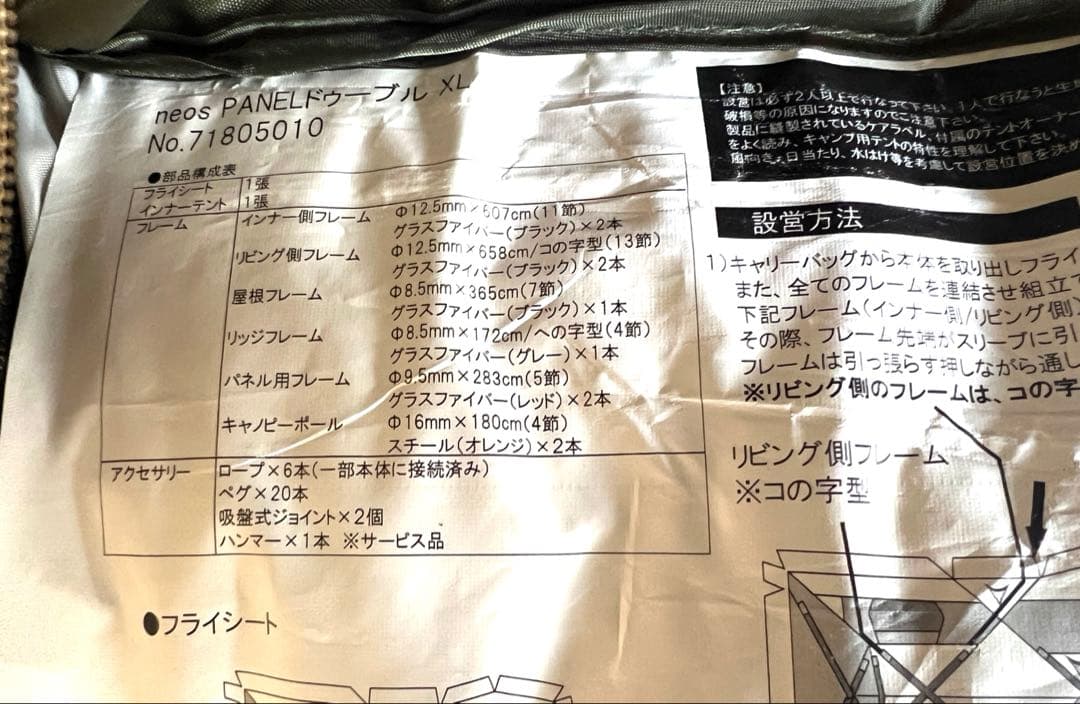 neos PANELドゥーブル XL
No.71805010
●部品構成表
フライシート 1張
インナーテント 1張
フレーム インナー側フレーム Φ12.5mm×607cm(11節)
グラスファイバー(ブラック)×2本
リビング側フレーム Φ12.5mm×658cm/コの字型(13節)
グラスファイバー(ブラック)×2本
屋根フレーム Φ8.5mm×365cm(7節)
グラスファイバー(ブラック)×1本
リッジフレーム Φ8.5mm×172cm/への字型(4節)
グラスファイバー(グレー)×1本
パネル用フレーム Φ9.5mm×283cm(5節)
グラスファイバー(レッド)×2本
キャノピーポール Φ16mm×180cm(4節)
スチール(オレンジ)×2本
アクセサリー ロープ×6本(一部本体に接続済み)
ペグ×20本
吸盤式ジョイント×2個
ハンマー×1本 ※サービス品
●フライシート
【注意】
設営は必ず2人以上で行なって下さい。1人で行なうと生
破損等の原因になりますのでご注意下さい。
製品に縫製されているケアラベル、付属のテントオーナー
をよく読み、キャンプ用テントの特性を理解して下さい。
風向き、日当たり、水はけ等を考慮して設営位置を決め
設営方法
1)キャリーバッグから本体を取り出しフライ
また、全てのフレームを連結させ組立て
下記フレーム(インナー側/リビング側)
その際、フレーム先端がスリーブに引
フレームは引っ張らず押しながら通し
※リビング側のフレームは、コの字
リビング側フレーム
※コの字型